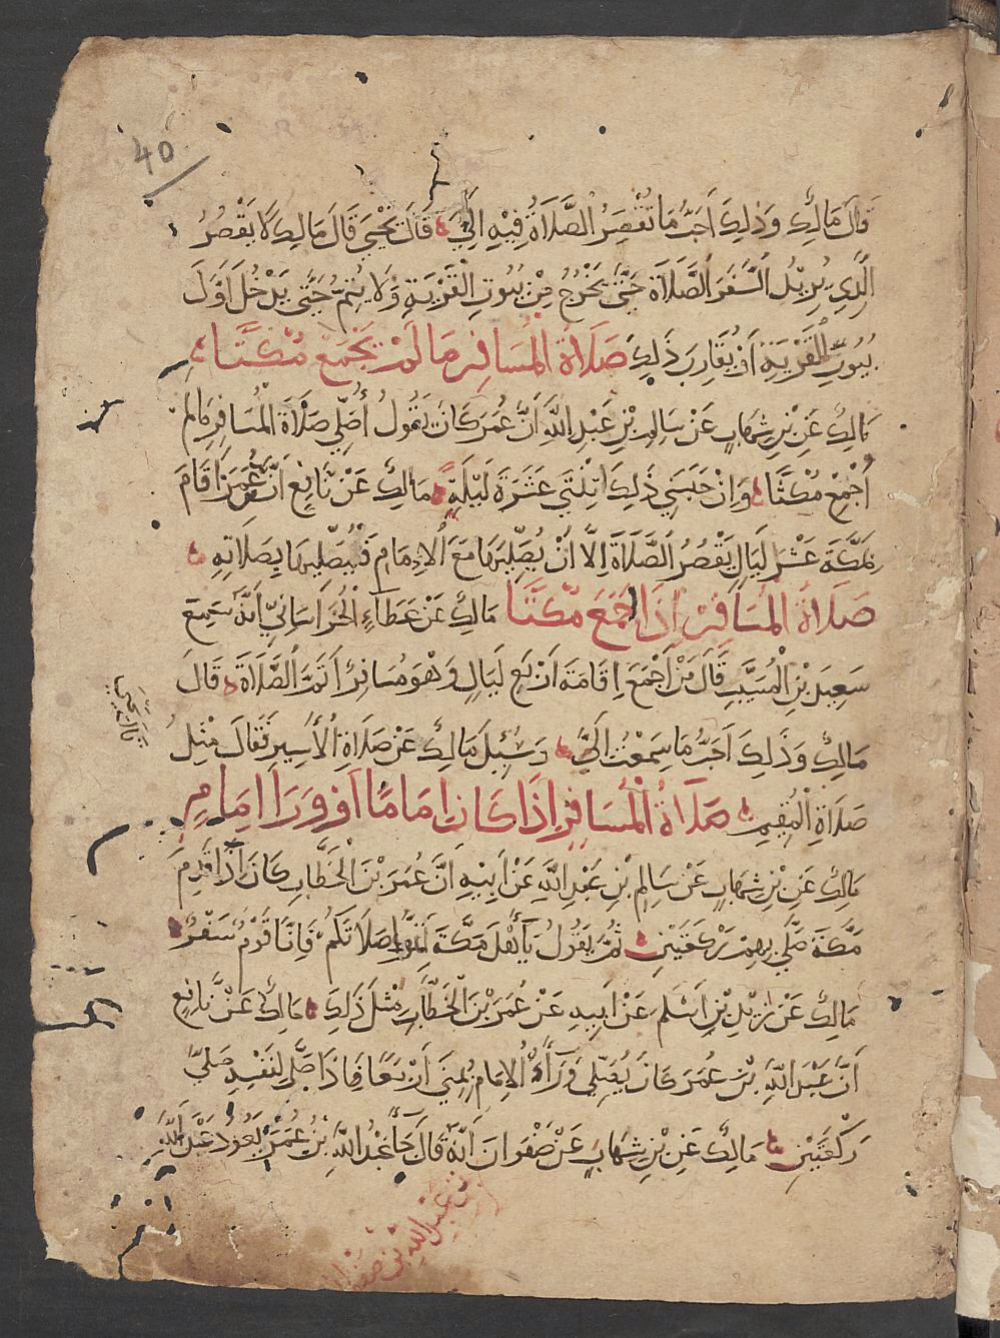 40
قَالَ مَالِكٌ وَذَلِكَ أَحَبُّ مَا تُقْصَرُ الصَّلَاةُ فِيهِ إِلَيَّ قَالَ يَحْيَى قَالَ مَالِكٌ لَا يَقْصُرُ
الَّذِي يُرِيدُ السَّفَرَ الصَّلَاةَ حَتَّى يَخْرُجَ مِنْ بُيُوتِ الْقَرْيَةِ وَلَا يُتِمُّ حَتَّى يَدْخُلَ أَوَّلَ
بُيُوتِ الْقَرْيَةِ أَوْ يُقَارِبَ ذَلِكَ صَلَاةُ الْمُسَافِرِ مَا لَمْ يُجْمِعْ مُكْثًا
مَالِكٌ عَنِ ابْنِ شِهَابٍ عَنْ سَالِمِ بْنِ عَبْدِ اللَّهِ أَنَّ عُمَرَ كَانَ يَقُولُ أُصَلِّي صَلَاةَ الْمُسَافِرِ مَا لَمْ
أُجْمِعْ مُكْثًا وَإِنْ حَبَسَنِي ذَلِكَ اثْنَتَيْ عَشَرَةَ لَيْلَةً مَالِكٌ عَنْ نَافِعٍ أَنَّ عُمَرَ أَقَامَ
بِمَكَّةَ عَشْرَ لَيَالٍ يَقْصُرُ الصَّلَاةَ إِلَّا أَنْ يُصَلِّيَهَا مَعَ الْإِمَامِ فَيُصَلِّيهَا بِصَلَاتِهِ
صَلَاةُ الْمُسَافِرِ إِذَا أَجْمَعَ مُكْثًا مَالِكٌ عَنْ عَطَاءٍ الْخُرَاسَانِيِّ أَنَّهُ سَمِعَ
سَعِيدَ بْنَ الْمُسَيَّبِ قَالَ مَنْ أَجْمَعَ إِقَامَةَ أَرْبَعِ لَيَالٍ وَهْوَ مُسَافِرٌ أَتَمَّ الصَّلَاةَ قَالَ
مَالِكٌ وَذَلِكَ أَحَبُّ مَا سَمِعْتُ إِلَيَّ وَسُئِلَ مَالِكٌ عَنْ صَلَاةِ الْأَسِيرِ فَقَالَ مِثْلُ
صَلَاةِ الْمُقِيمِ صَلَاةُ الْمُسَافِرِ إِذَا كَانَ إِمَامًا أَوْ وَرَا إِمَامٍ
مَالِكٌ عَنِ ابْنِ شِهَابٍ عَنْ سَالِمِ بْنِ عَبْدِ اللَّهِ عَنْ أَبِيهِ أَنَّ عُمَرَ بْنَ الْخَطَّابِ كَانَ إِذَا قَدِمَ
مَكَّةَ صَلَّى بِهِمْ رَكْعَتَيْنِ ثُمَّ يَقُولُ يَا أَهْلَ مَكَّةَ أَتِمُّوا صَلَاتَكُمْ فَإِنَّا قَوْمٌ سَفْرٌ
مَالِكٌ عَنْ زَيْدِ بْنِ أَسْلَمَ عَنْ أَبِيهِ عَنْ عُمَرَ بْنِ الْخَطَّابِ مِثْلَ ذَلِكَ مَالِكٌ عَنْ نَافِعٍ
أَنَّ عَبْدَ اللَّهِ بْنَ عُمَرَ كَانَ يُصَلِّي وَرَاءَ الْإِمَامِ بِمِنًى أَرْبَعًا فَإِذَا صَلَّى لِنَفْسِهِ صَلَّى
رَكْعَتَيْنِ مَالِكٌ عَنِ ابْنِ شِهَابٍ عَنْ صَفْوَانَ أَنَّهُ قَالَ جَاءَ عَبْدُ اللَّهِ بْنُ عُمَرَ يَعُودُ عَبْدَ اللَّهِ
بن عبد الله بن صفوان